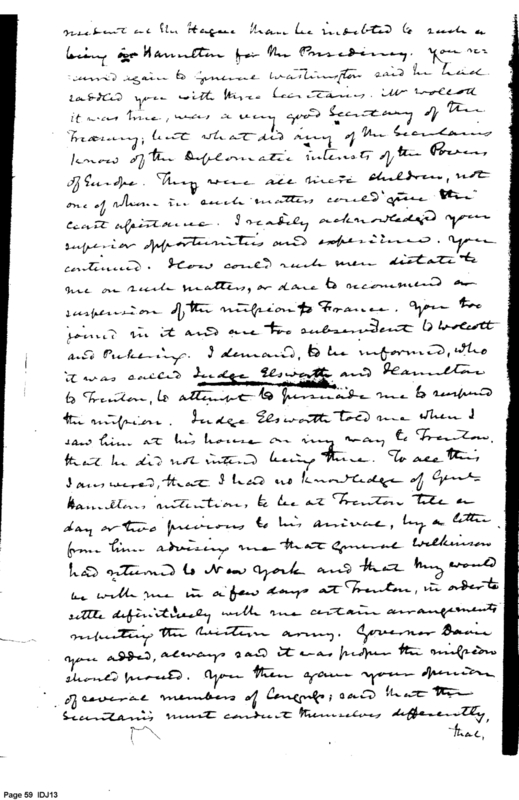 resident at the Hague than be indebted to such a
being as Hamilton for the Presidency. You re-
curred again to general Washington said he had
saddled you with three Secretaries. Mr Wolcott
it was true, was a very good Secretary of the
Treasury; but what did any of the Secretaries
know of the Diplomatic interests of the Powers
of Europe. They were all mere children, not
one of whom in such matters could give the
least assistance. I readily acknowledged your
superior opportunities and experience. You
continued. How could such men dictate to
me on such matters, or dare to recommend a
suspension of the mission to France. You too
joined in it and are too subservient to Wolcott
and Pickering. I demand, to be informed, who
it was called Judge Elsworth and Hamilton
to Trenton, to attempt to persuade me to suspend
the mission. Judge Elsworth told me when I
saw him at his house on my way to Trenton,
that he did not intend being there. To all this
I answered, that I had no knowledge of Genl
Hamiltons intentions to be at Trenton till a
day or two previous to his arrival, by a letter
from him advising me that General Wilkinson
had returned to New York and that they would
be with me in a few days at Trenton, in order to
settle definitively with me certain arrangements
respecting the western army. Governor Davie
you added, always said it was proper the mission
should proceed. You then gave your opinion
of several members of Congress; said that the
Secretaries must conduct themselves differently,
that,
Page 59 IDJ13